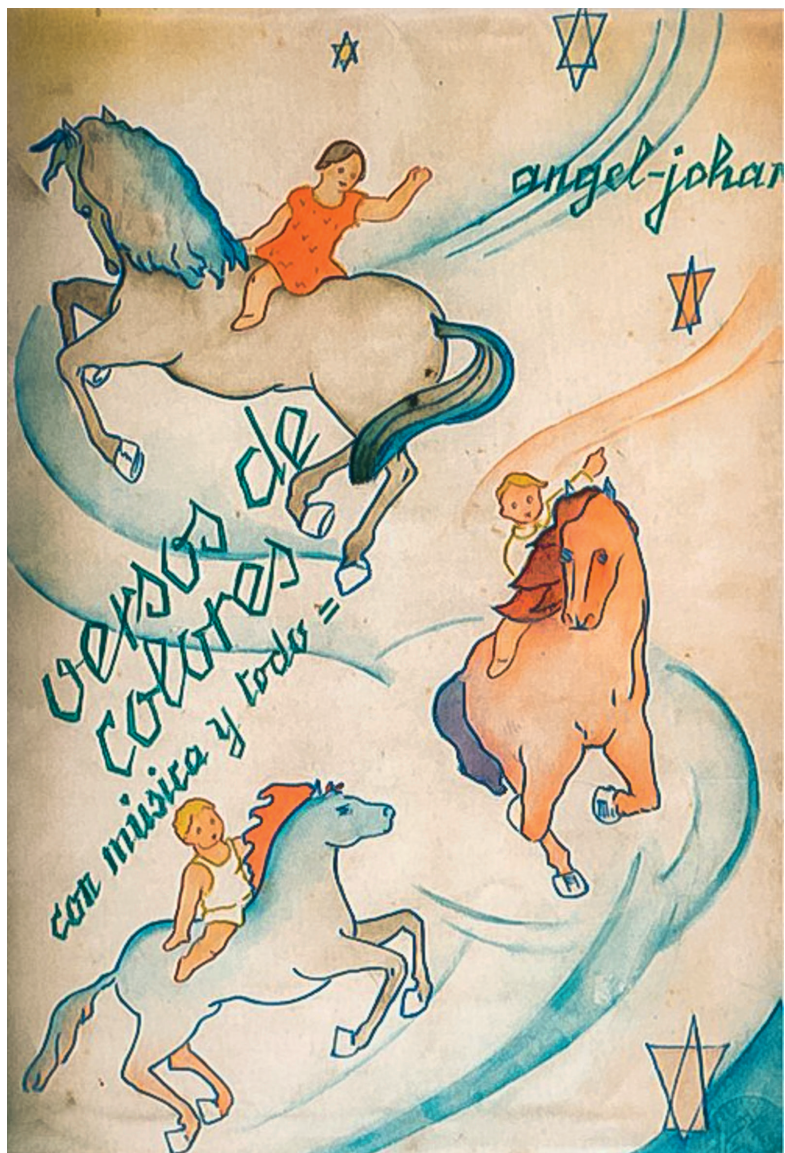 angel-johan
versos de
colores
con música y todo =